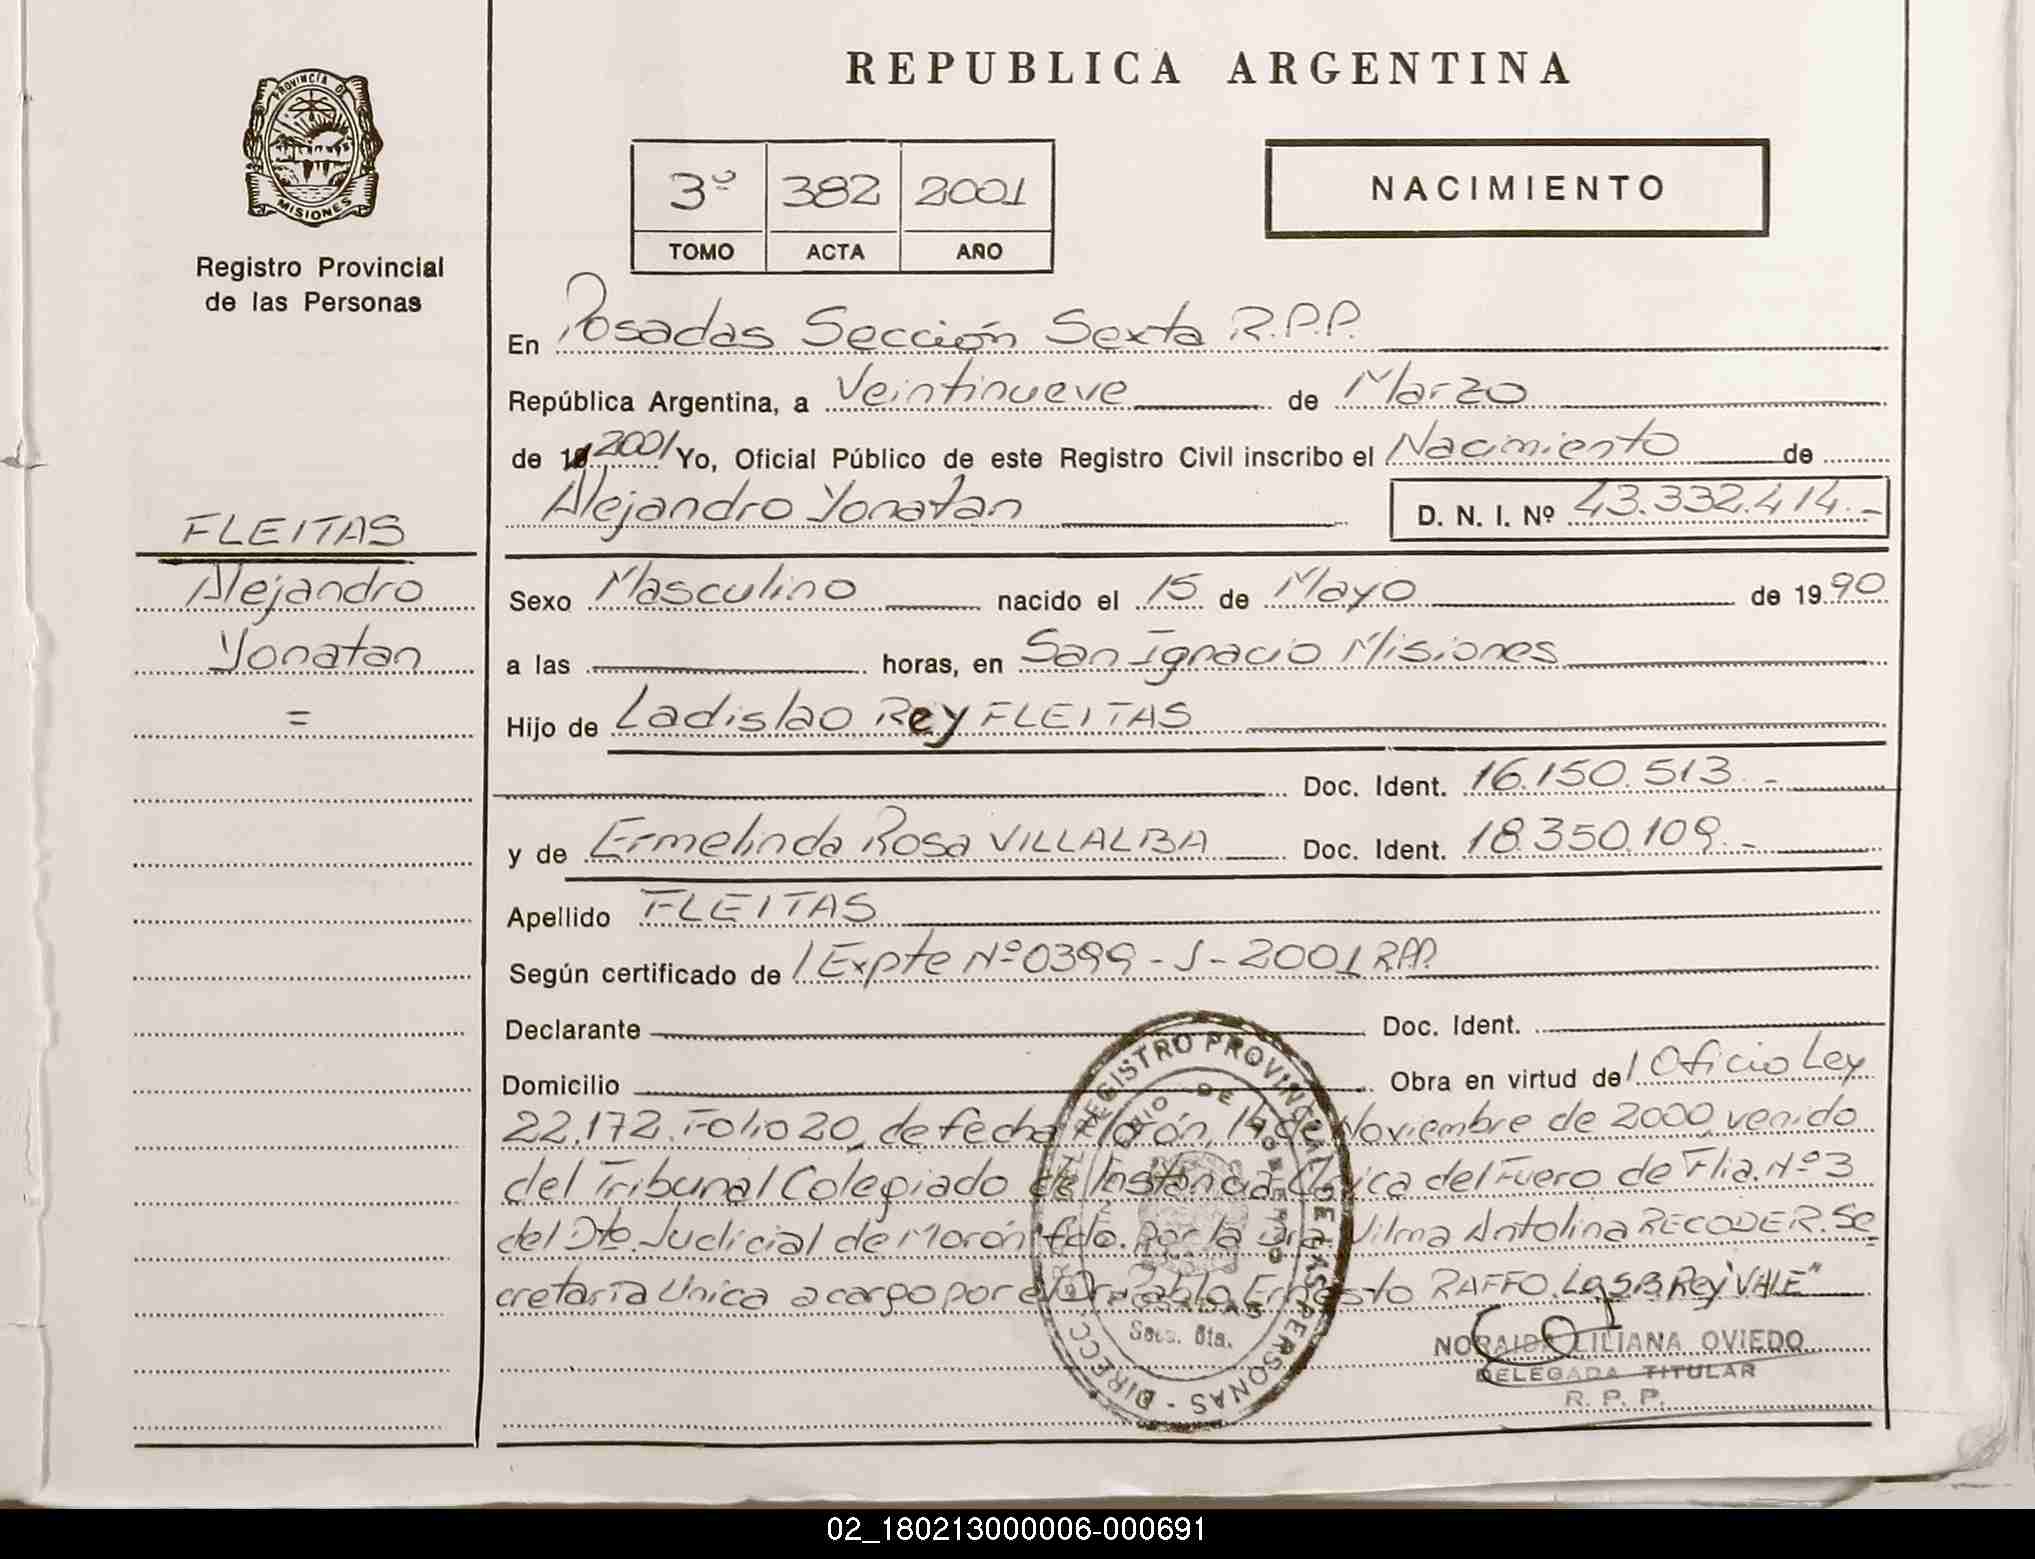 PROVINCIA DE
MISIONES
Registro Provincial
de las Personas
FLEITAS
Alejandro
Yonatan
=
REPUBLICA ARGENTINA
3º 382 2001
TOMO ACTA AÑO
NACIMIENTO
En Posadas Sección Sexta R.P.P.
República Argentina, a Veintinueve de Marzo
de 2001 Yo, Oficial Público de este Registro Civil inscribo el Nacimiento de
Alejandro Yonatan D. N. I. Nº 43.332.414.-
Sexo Masculino nacido el 15 de Mayo de 1990
a las horas, en San Ignacio Misiones
Hijo de Ladislao Rey FLEITAS
Doc. Ident. 16.150.513.-
y de Ermelinda Rosa VILLALBA Doc. Ident. 18.350.109.-
Apellido FLEITAS
Según certificado de / Expte Nº 0399-J-2001 R.P.P.
Declarante Doc. Ident.
Domicilio Obra en virtud de / Oficio Ley
22.172. Folio 20, de fecha Morón, 14 de Noviembre de 2000, venido
del Tribunal Colegiado de Instancia Unica del Fuero de Flia. Nº 3
del Dto. Judicial de Morón fdo. por la Dra Vilma Antolina RECODER. Se
cretaria Unica a cargo por el Dr Pablo Ernesto RAFFO. Lo S.B. Rey "VALE"
DIRECC REGISTRO PROVINCIAL DE LAS PERSONAS
POSADAS
Secc. 6ta.
NORAIDA LILIANA OVIEDO
DELEGADA TITULAR
R. P. P.
02_180213000006-000691